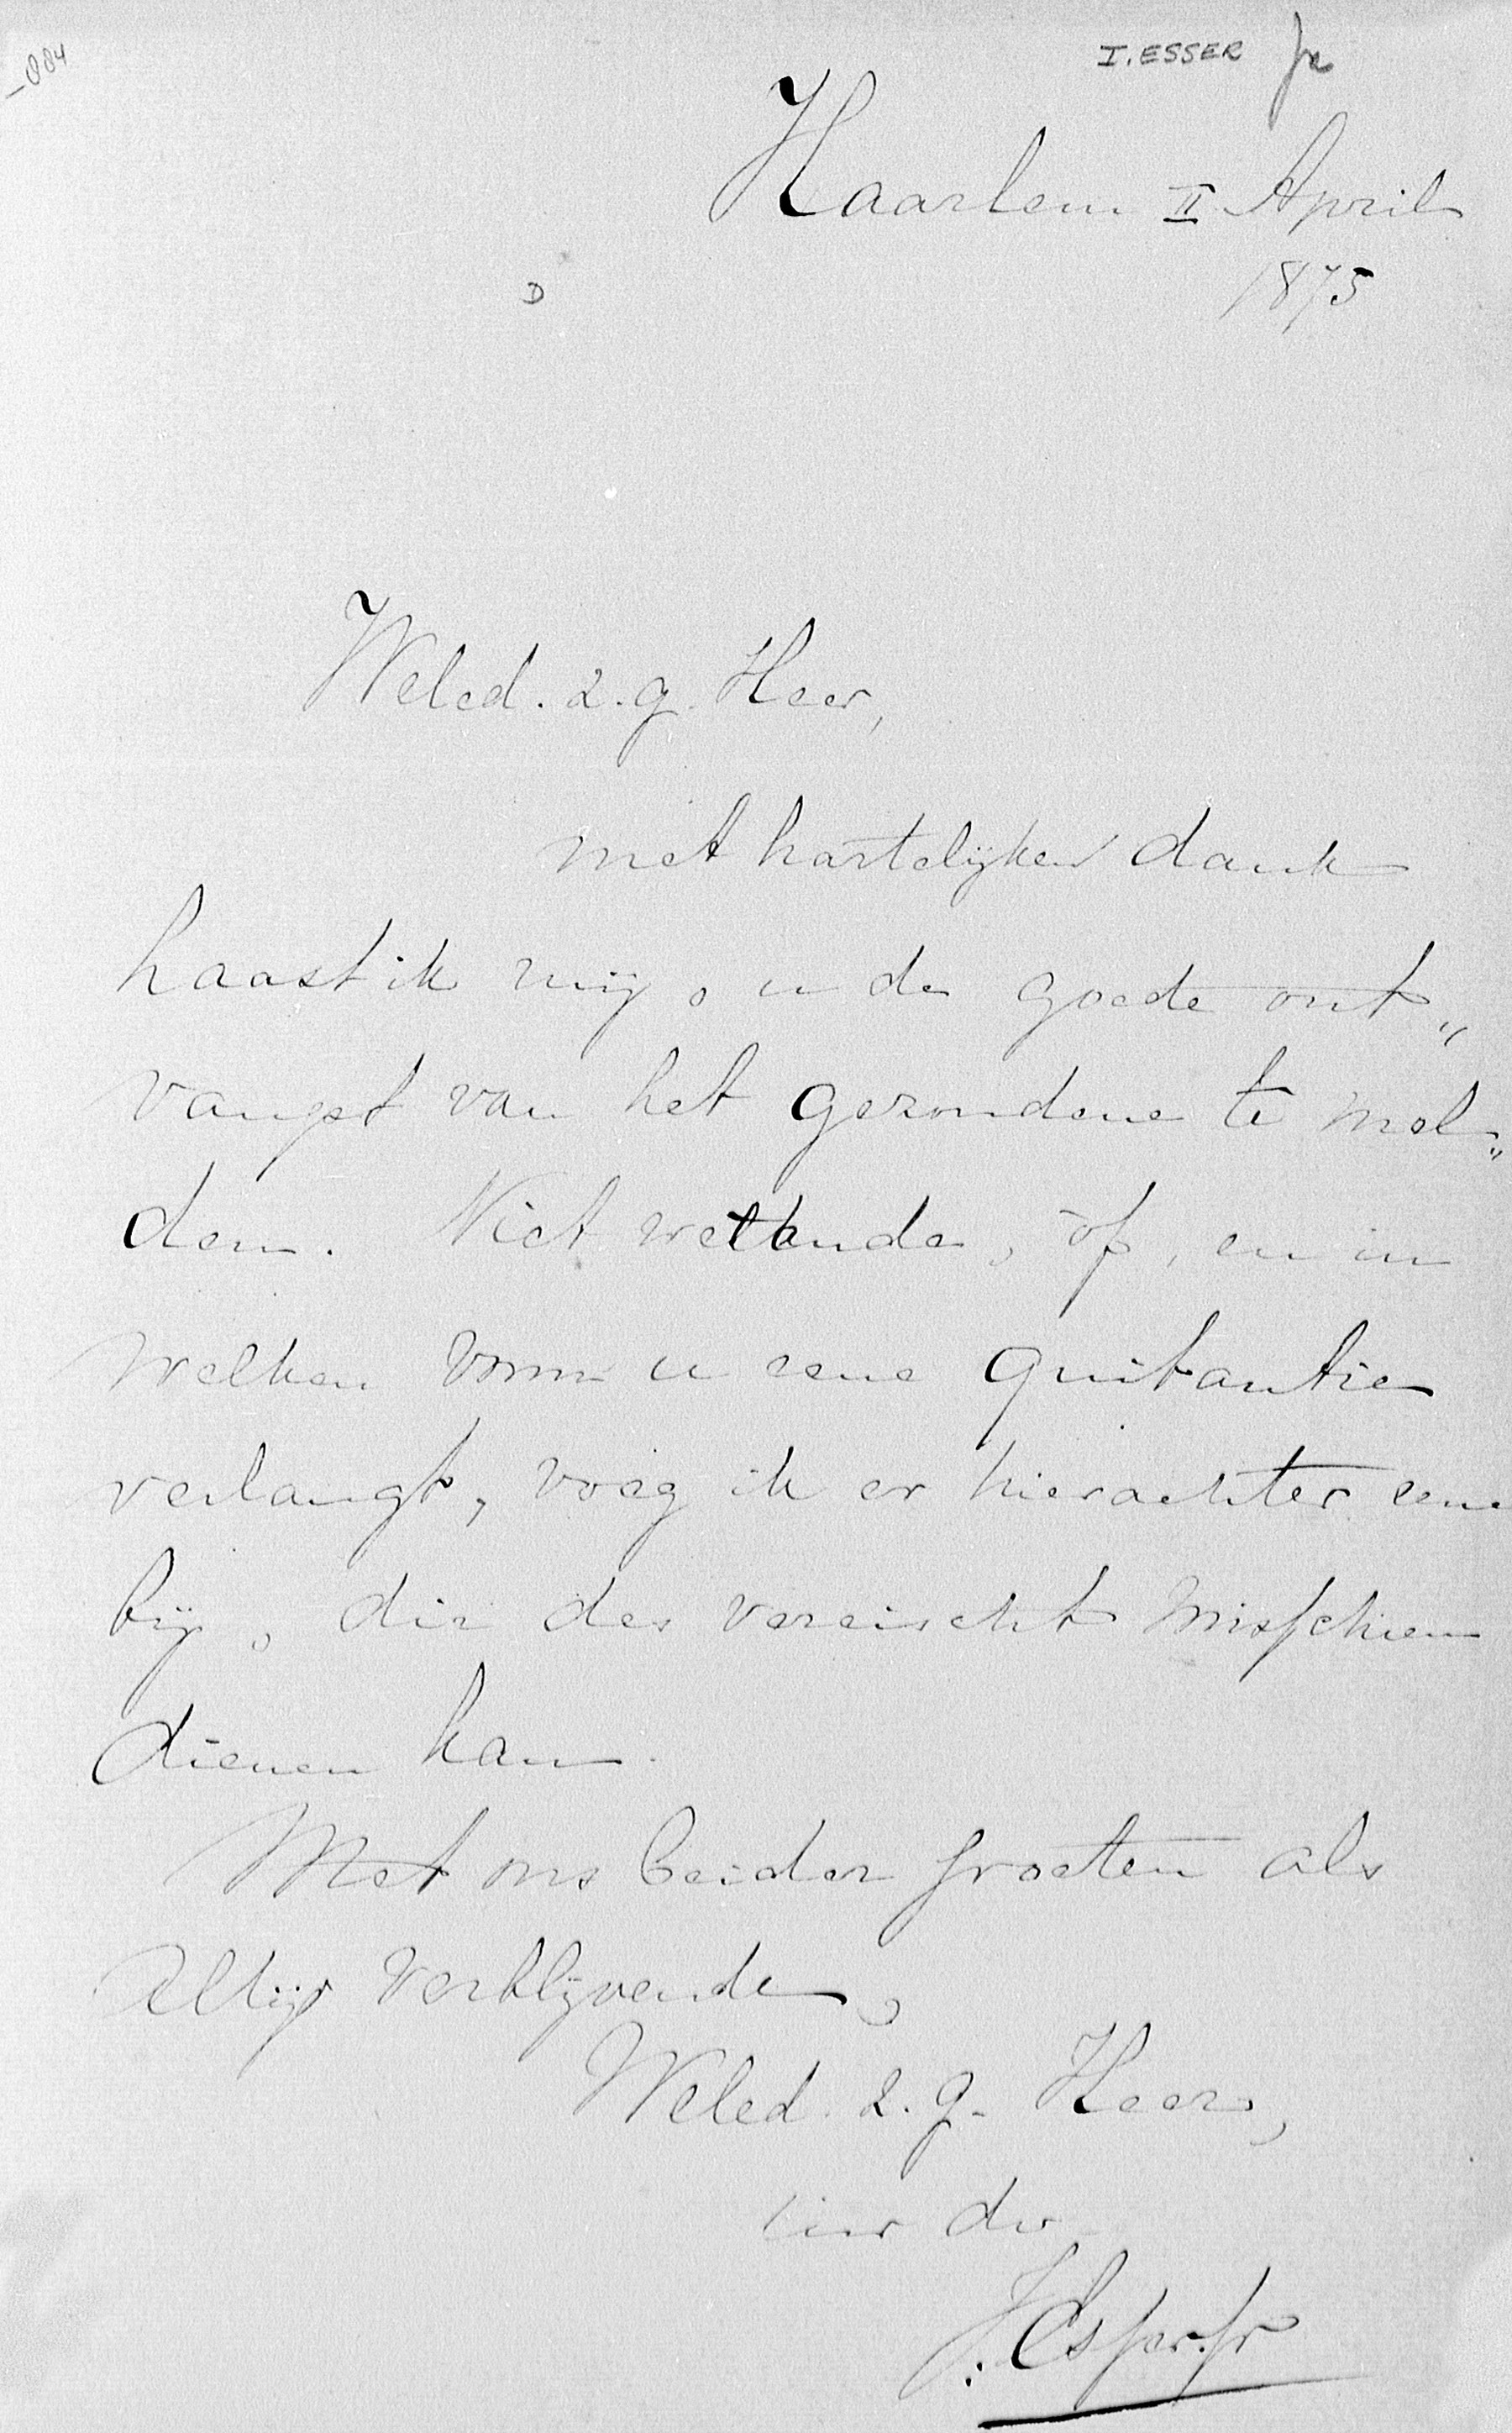 _084
I. ESSER Jr
Haarlem II April
1875
D
Weled. z. g. Heer,
met hartelijken dank
haast ik mij, u de goede ont„
vangst van het gezondene te mel„
den. Niet wetende, óf, en in
welken vorm u eene quitantie
verlangt, voeg ik er hierachter eene
bij, die des vereischt misschien
dienen kan.
Met ons beider groeten als
altijd verblijvende,
Weled. z. g. Heer,
Uw dv
I. Esser Jr